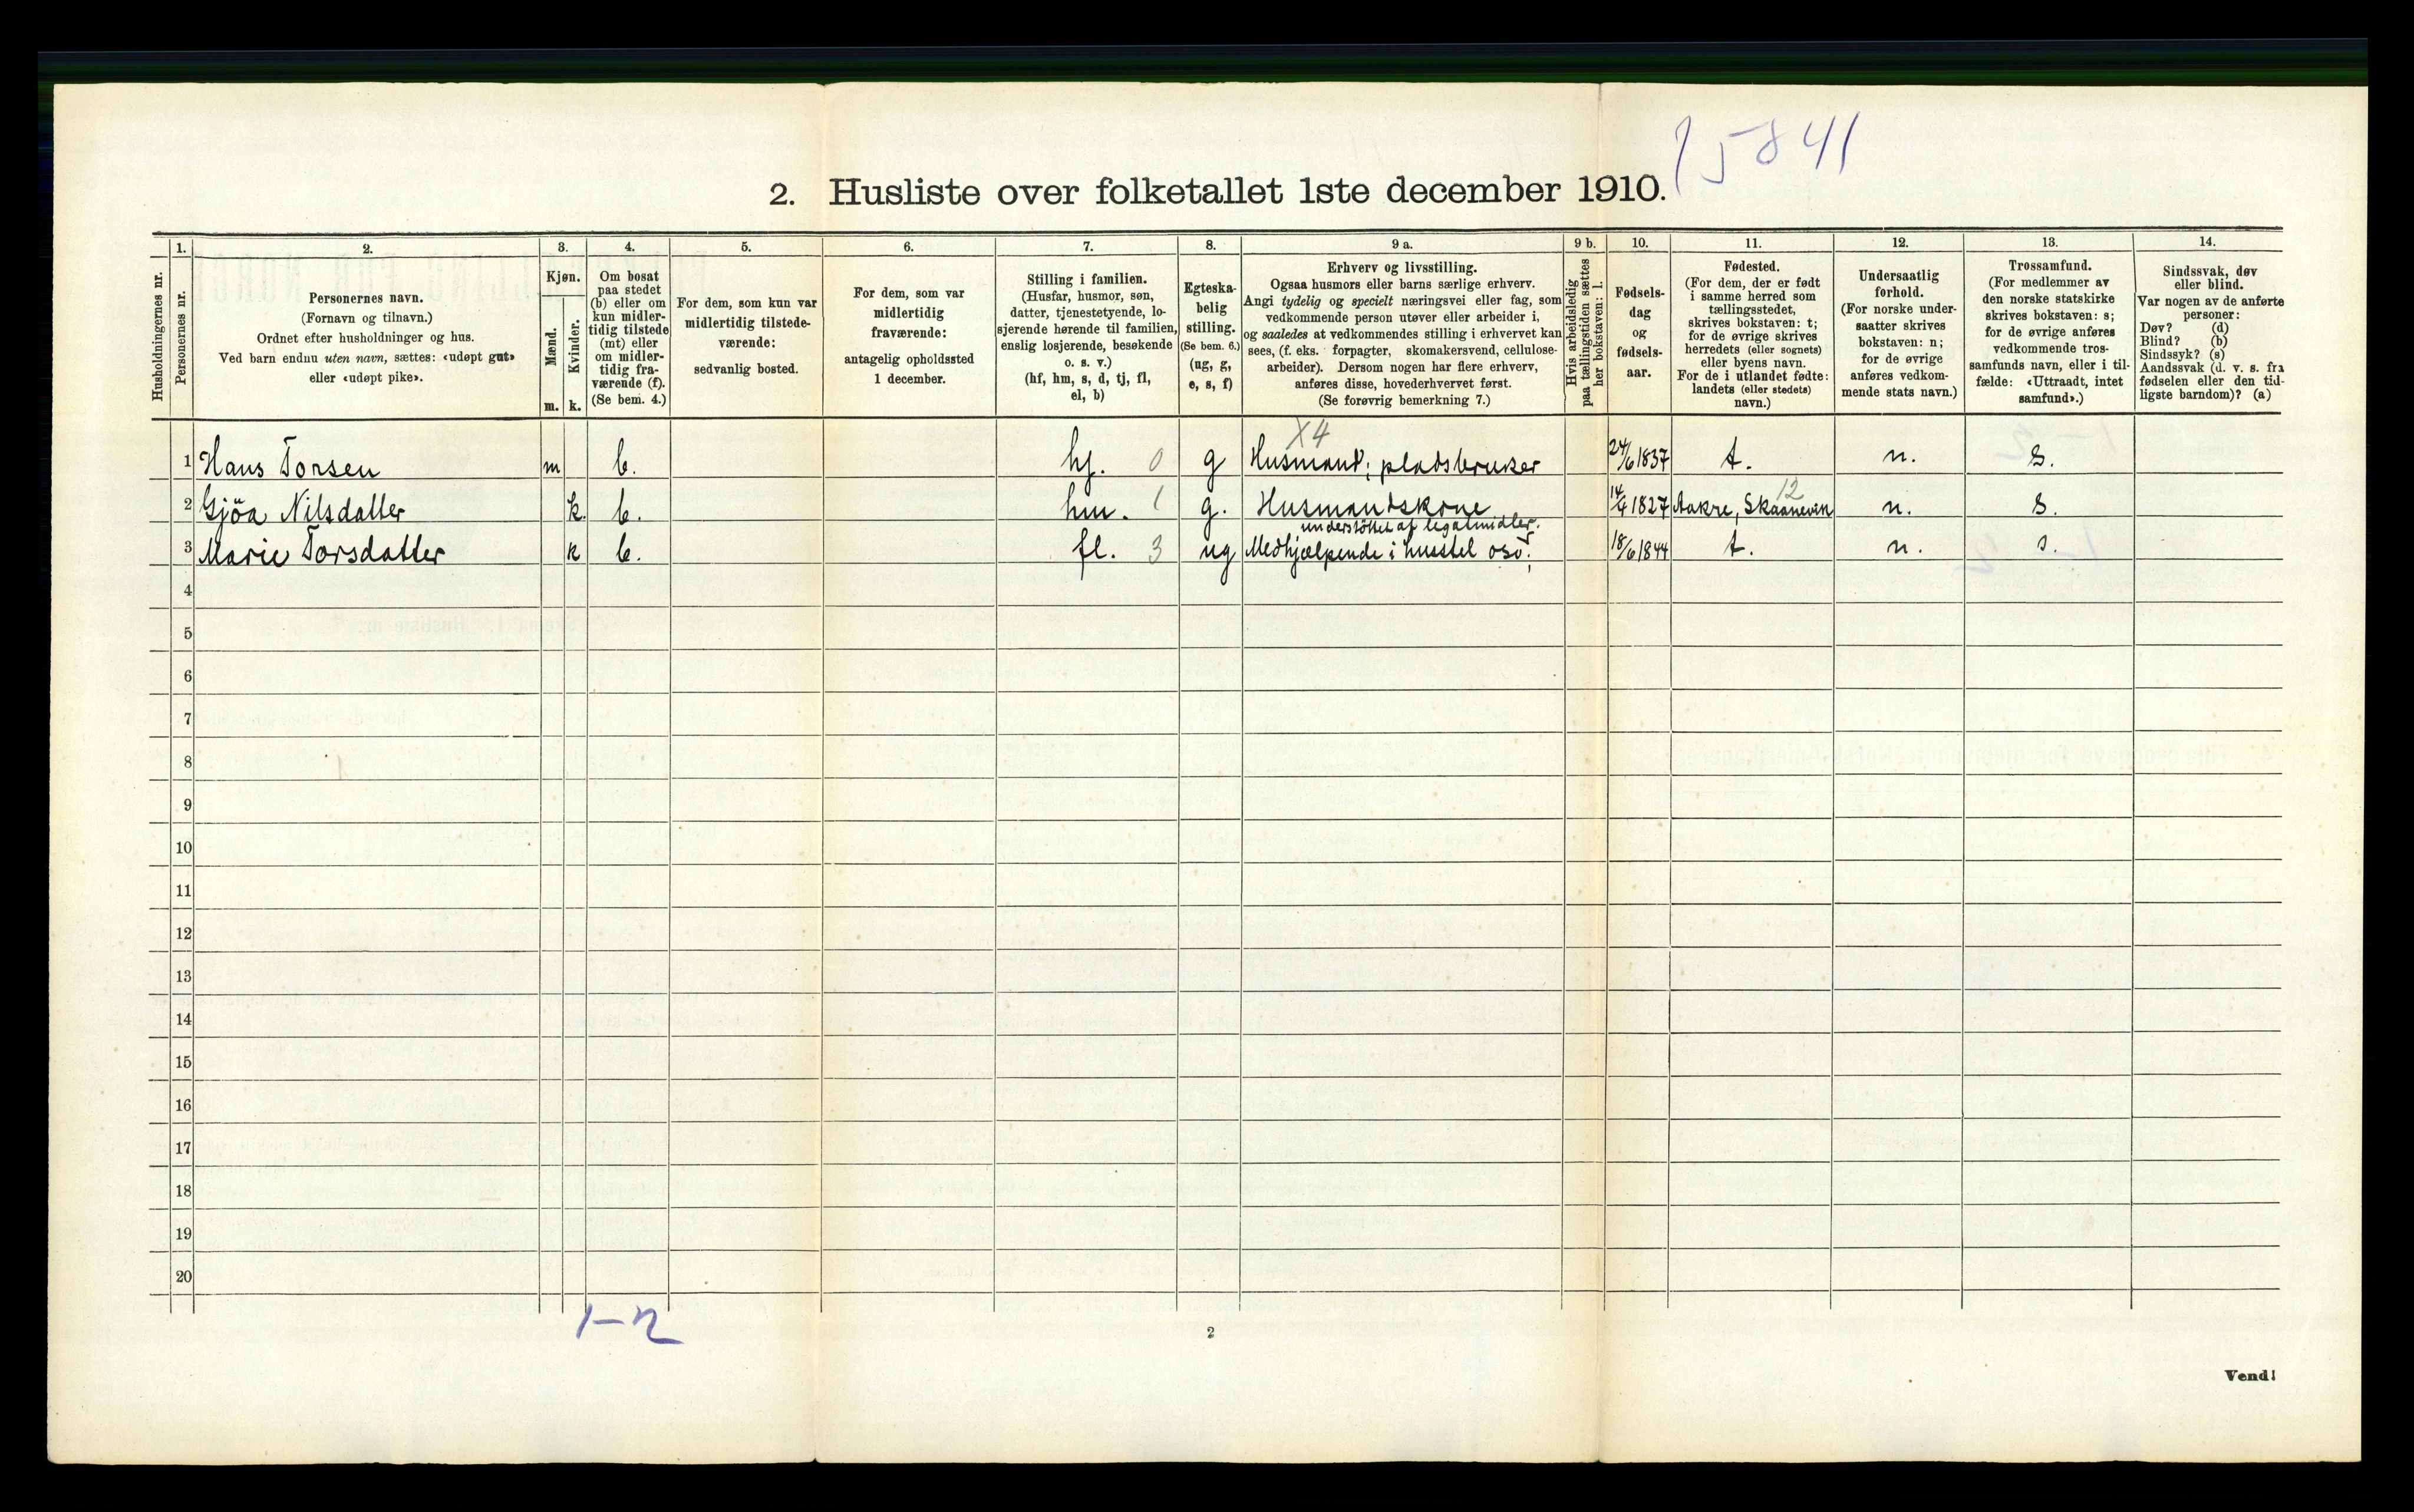 15841
2. Husliste over folketallet 1ste december 1910.
Husholdningernes nr.
1.
Personernes nr.
2.
Personernes navn.
(Fornavn og tilnavn.)
Ordnet efter husholdninger og hus.
Ved barn endnu uten navn, sættes: «udøpt gut»
eller «udøpt pike».
3.
Kjøn.
Mænd.
Kvinder.
m. k.
4.
Om bosat
paa stedet
(b) eller om
kun midler-
tidig tilstede
(mt) eller
om midler-
tidig fra-
værende (f).
(Se bem. 4.)
5.
For dem, som kun var
midlertidig tilstede-
værende:
sedvanlig bosted.
6.
For dem, som var
midlertidig
fraværende:
antagelig opholdssted
1 december.
7.
Stilling i familien.
(Husfar, husmor, søn,
datter, tjenestetyende, lo-
sjerende hørende til familien,
enslig losjerende, besøkende
o. s. v.)
(hf, hm, s, d, tj, fl,
el, b)
8.
Egteska-
belig
stilling.
(Se bem. 6.)
(ug, g,
e, s, f)
9 a.
Erhverv og livsstilling.
Ogsaa husmors eller barns særlige erhverv.
Angi tydelig og specielt næringsvei eller fag, som
vedkommende person utøver eller arbeider i,
og saaledes at vedkommendes stilling i erhvervet kan
sees, (f. eks. forpagter, skomakersvend, cellulose-
arbeider). Dersom nogen har flere erhverv,
anføres disse, hovederhvervet først.
(Se forøvrig bemerkning 7.)
9 b.
Hvis arbeidsledig
paa tællingstiden sættes
her bokstaven: l.
10.
Fødsels-
dag
og
fødsels-
aar.
11.
Fødested.
(For dem, der er født
i samme herred som
tællingsstedet,
skrives bokstaven: t;
for de øvrige skrives
herredets (eller sognets)
eller byens navn.
For de i utlandet fødte:
landets (eller stedets)
navn.)
12.
Undersaatlig
forhold.
(For norske under-
saatter skrives
bokstaven: n;
for de øvrige
anføres vedkom-
mende stats navn.)
13.
Trossamfund.
(For medlemmer av
den norske statskirke
skrives bokstaven: s;
for de øvrige anføres
vedkommende tros-
samfunds navn, eller i til-
fælde: «Uttraadt, intet
samfund».)
14.
Sindssvak, døv
eller blind.
Var nogen av de anførte
personer:
Døv? (d)
Blind? (b)
Sindssyk? (s)
Aandssvak (d. v. s. fra
fødselen eller den tid-
ligste barndom)? (a)
X4
1 Hans Torsen m b. hf. 0 g Husmand; pladsbruker 24/6 1837 t. n. S.
12
2 Gjöa Nilsdatter k. b. hm. 1 g. Husmandskone 14/4 1827 Aakre, Skaanevik n. S.
understöttet af legatmidler.
3 Marie Torsdatter k b. fl. 3 ug Medhjælpende i husstel osv; 18/6 1844 t. n. s.
4
5
6
7
8
9
10
11
12
13
14
15
16
17
18
19
20
1-2
2
Vend!